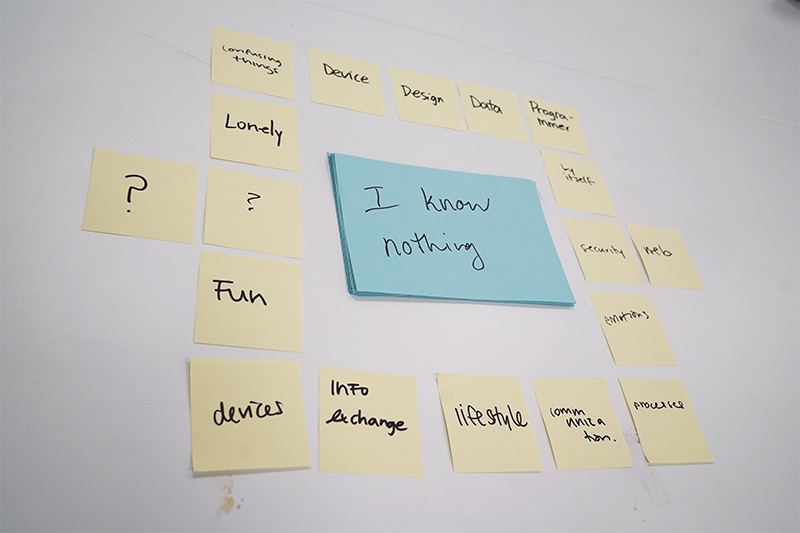 confusing
things
Device
Design
Data
Progra-
mmer
Lonely
by
itself
?
?
I know
nothing
security
web
Fun
emotions
devices
Info
exchange
lifestyle
comm
uniza
tion.
processes